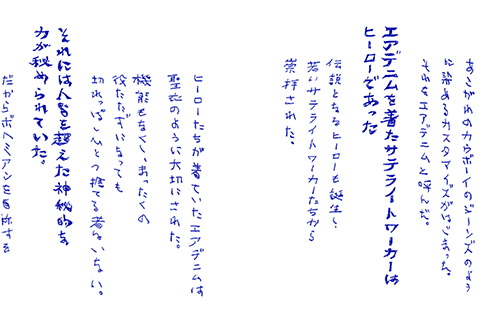 あこがれのカウボーイのジーンズのよう
に染めるカスタマイズがはじまった。
それをエアデニムと呼んだ。
エアデニムを着たサテライトワーカーは
ヒーローであった
伝説となるヒーローも誕生し
若いサテライトワーカーたちから
崇拝された。
ヒーローたちが着ていたエアデニムは
聖衣のように大切にされた。
機能もなくしまったくの
役たたずになっても
切れっぱしひとつ捨てる者はいない。
それには人智を超えた神秘的な
力が秘められていた。
だからボヘミアンを自称する